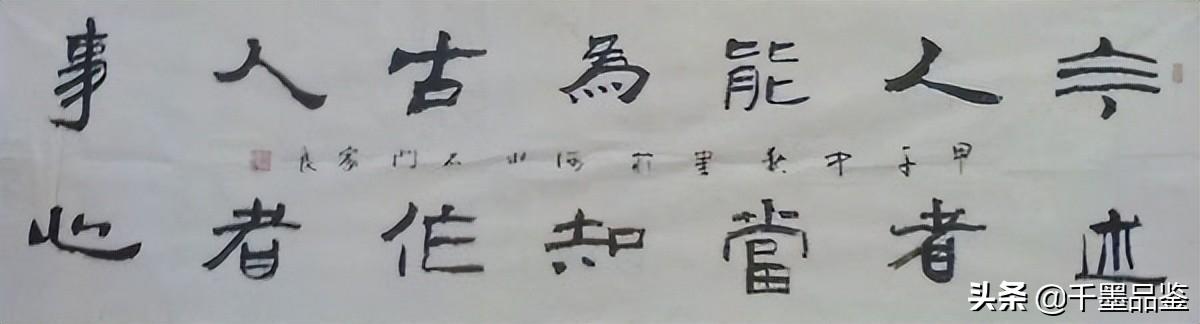 今人能為古人事
述者當知作者心
甲午中秋書於河北石門家良
头条 @千墨品鉴